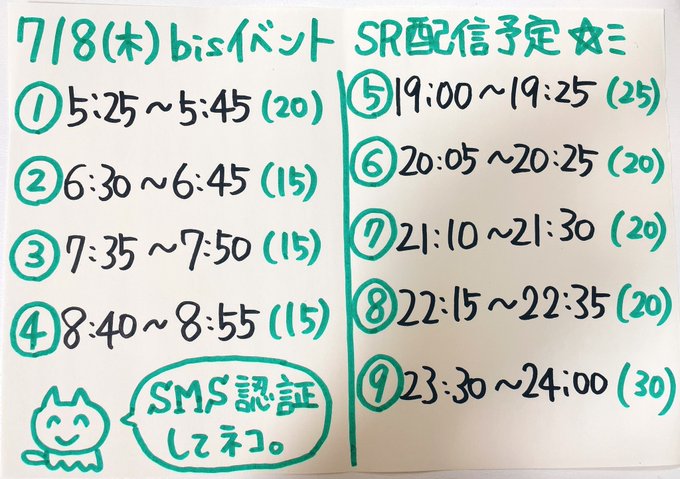 7/8(木) bisイベント SR配信予定☆ミ
① 5:25〜5:45 (20)
② 6:30〜6:45 (15)
③ 7:35〜7:50 (15)
④ 8:40〜8:55 (15)
SMS認証
してネコ。
⑤ 19:00〜19:25 (25)
⑥ 20:05〜20:25 (20)
⑦ 21:10〜21:30 (20)
⑧ 22:15〜22:35 (20)
⑨ 23:30〜24:00 (30)